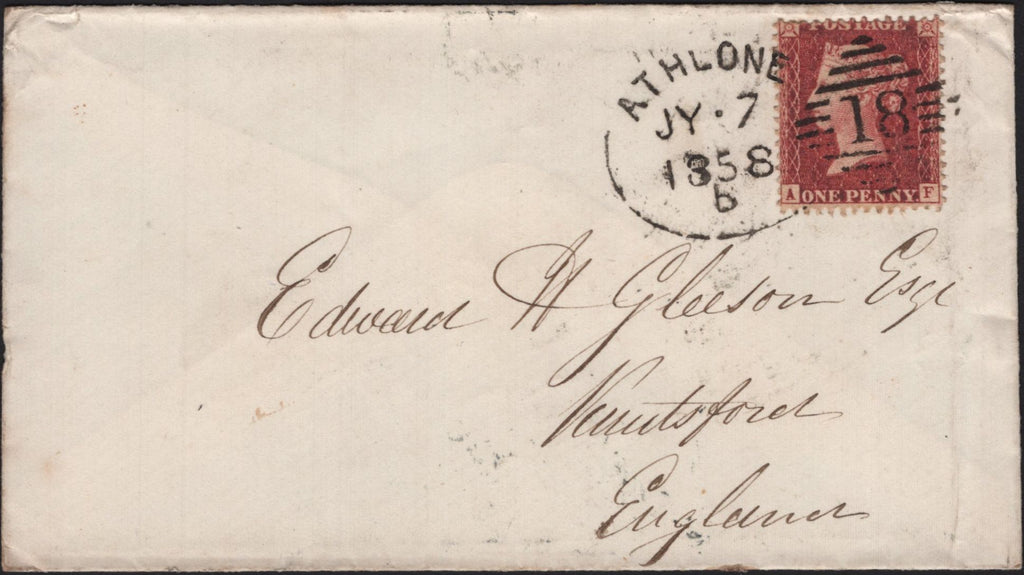 ATHLONE
JY·7
1858
b
POSTAGE
18
A ONE PENNY. F
Edward H Gleeson Esqr
Knutsford
England